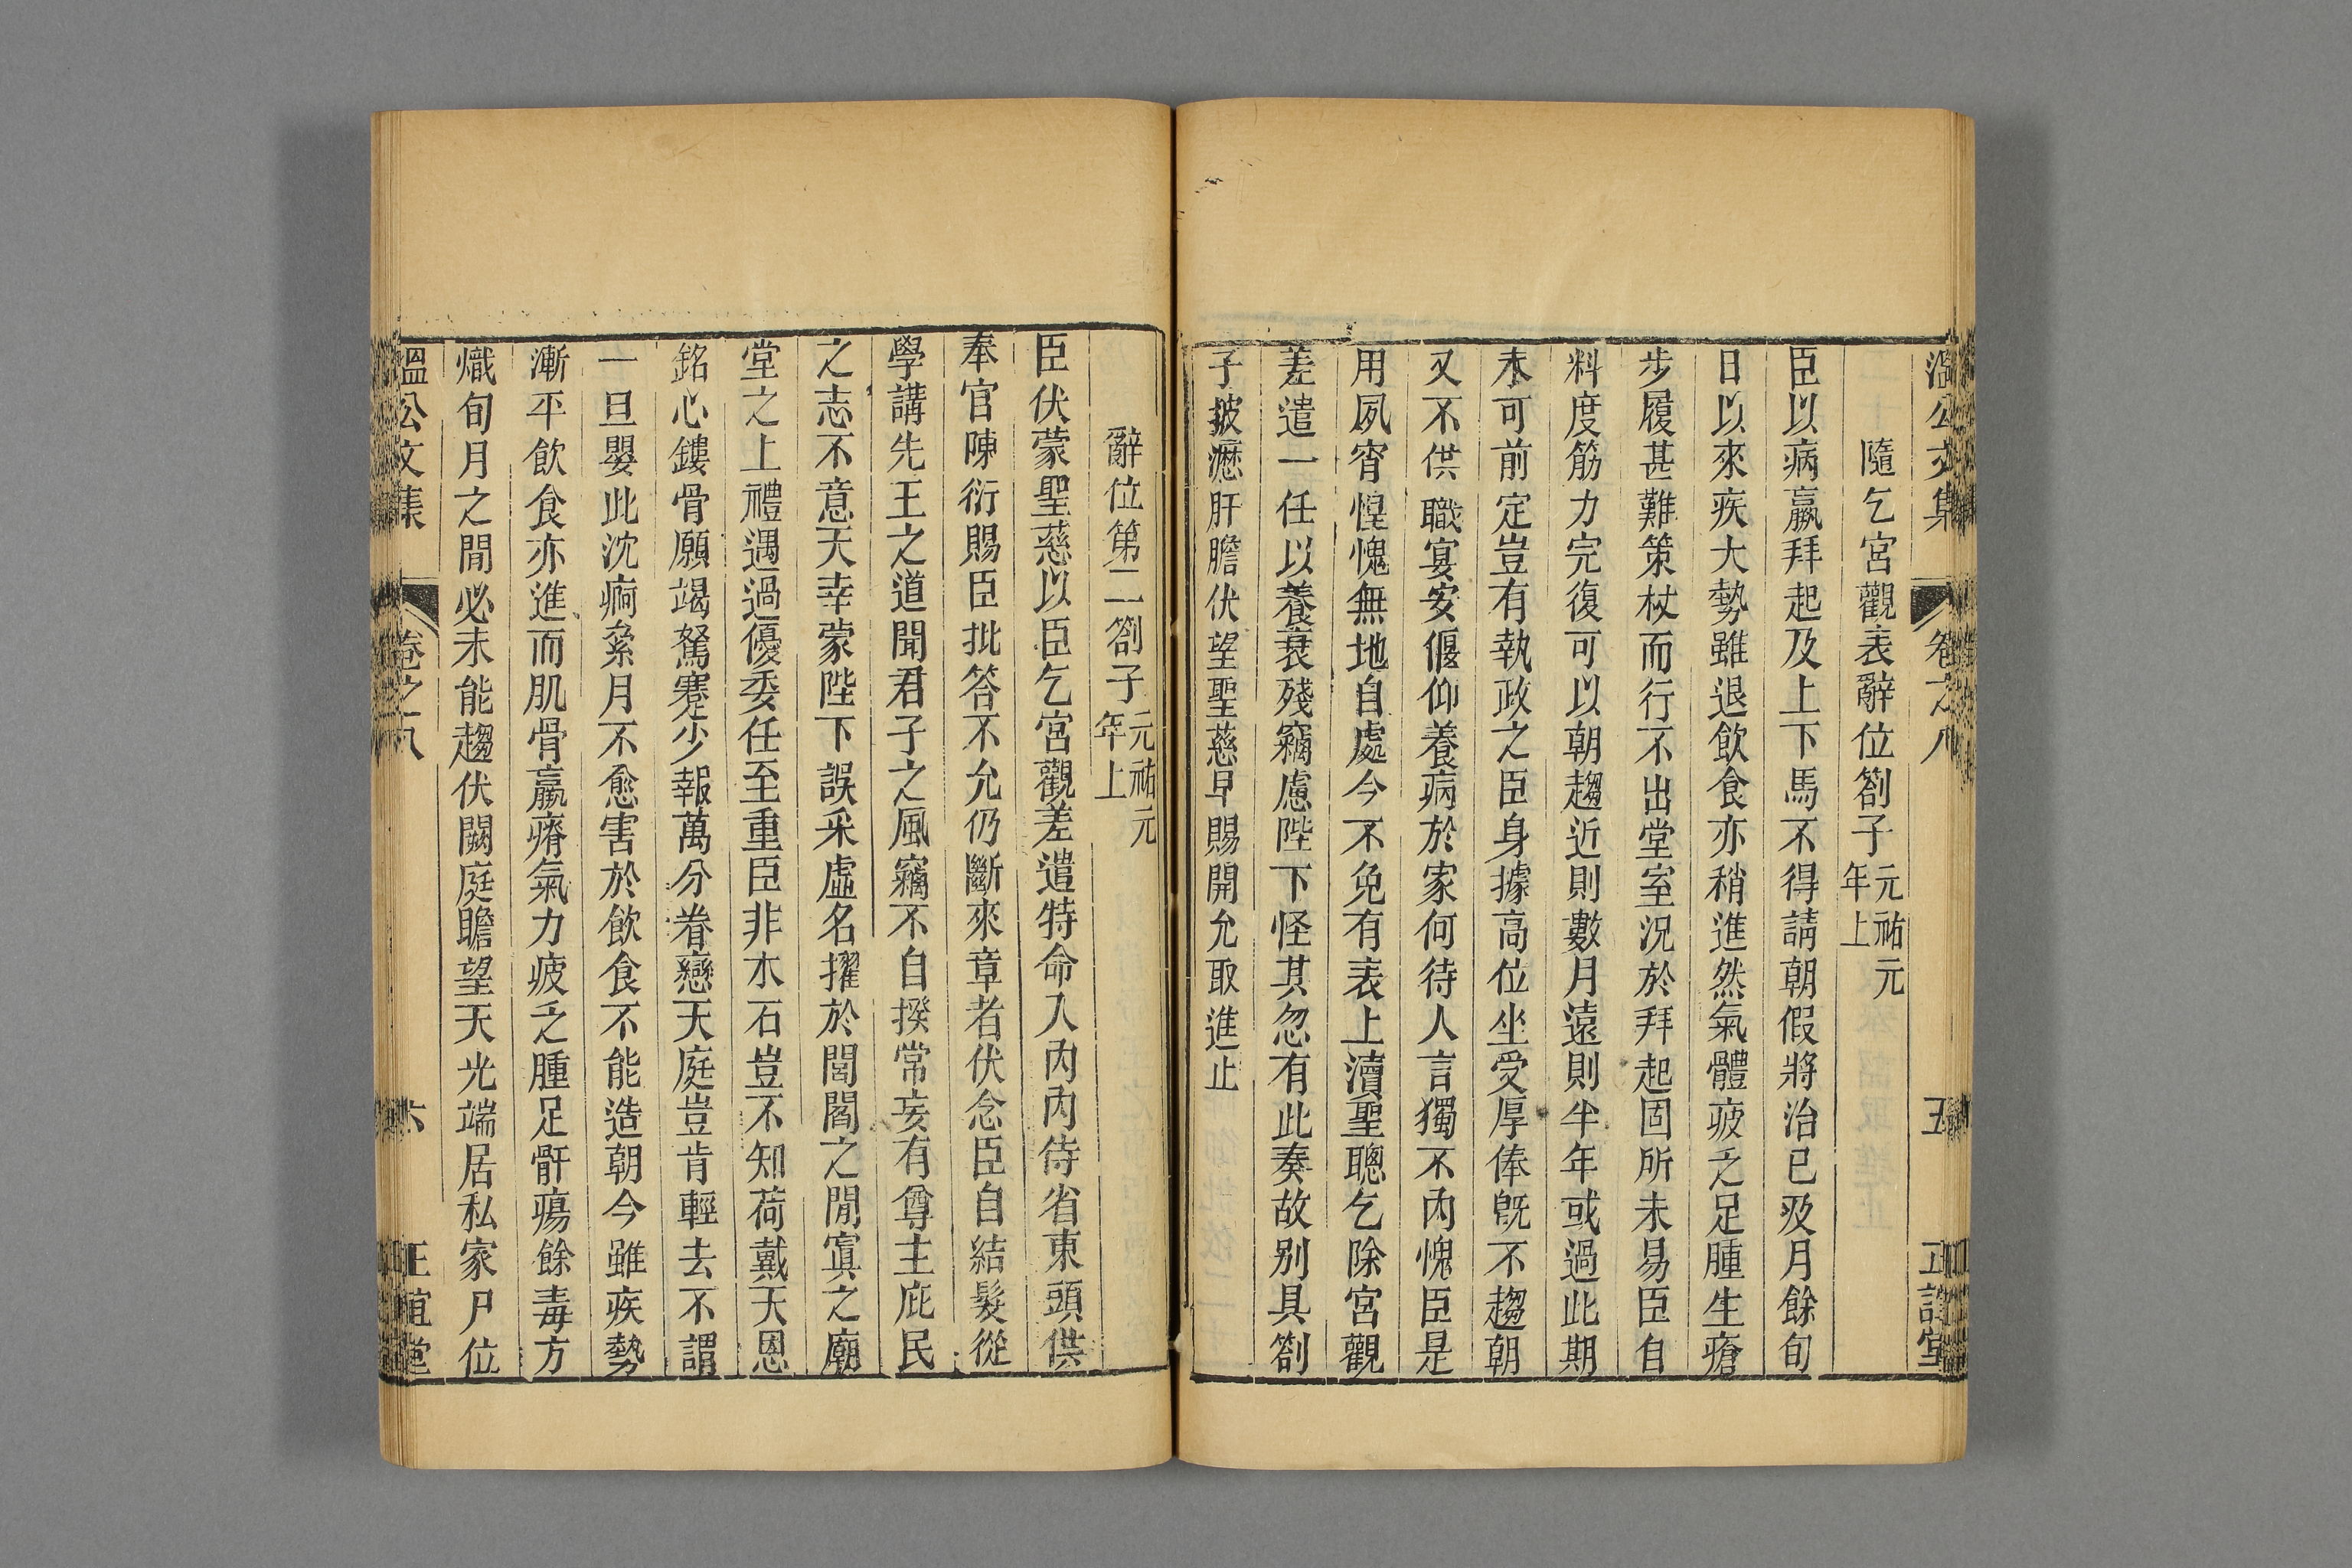 溫公文集 卷之八 五 正誼堂
隨乞宮觀表辭位劄子元祐元年上
臣以病羸拜起及上下馬不得請朝假將治已及月餘旬
日以來疾大勢雖退飲食亦稍進然氣體疲乏足腫生瘡
步履甚難策杖而行不出堂室況於拜起固所未易臣自
料度筋力完復可以朝趨近則數月遠則半年或過此期
未可前定豈有執政之臣身據高位坐受厚俸旣不趨朝
又不供職宴安偃仰養病於家何待人言獨不內愧臣是
用夙宵惶愧無地自處今不免有表上瀆聖聰乞除宮觀
差遣一任以養衰殘竊慮陛下怪其忽有此奏故別具劄
子披瀝肝膽伏望聖慈早賜開允取進止
辭位第二劄子元祐元年上
臣伏蒙聖慈以臣乞宮觀差遣特命入內內侍省東頭供
奉官陳衍賜臣批答不允仍斷來章者伏念臣自結髮從
學講先王之道聞君子之風竊不自揆常妄有尊主庇民
之志不意天幸蒙陛下誤采虛名擢於閭閻之閒寘之廟
堂之上禮遇過優委任至重臣非木石豈不知荷戴天恩
銘心鏤骨願竭駑蹇少報萬分眷戀天庭豈肯輕去不謂
一旦嬰此沈痾絫月不愈害於飲食不能造朝今雖疾勢
漸平飲食亦進而肌骨羸瘠氣力疲乏腫足骭瘍餘毒方
熾旬月之閒必未能趨伏闕庭瞻望天光端居私家尸位
溫公文集 卷之八 六 正誼堂